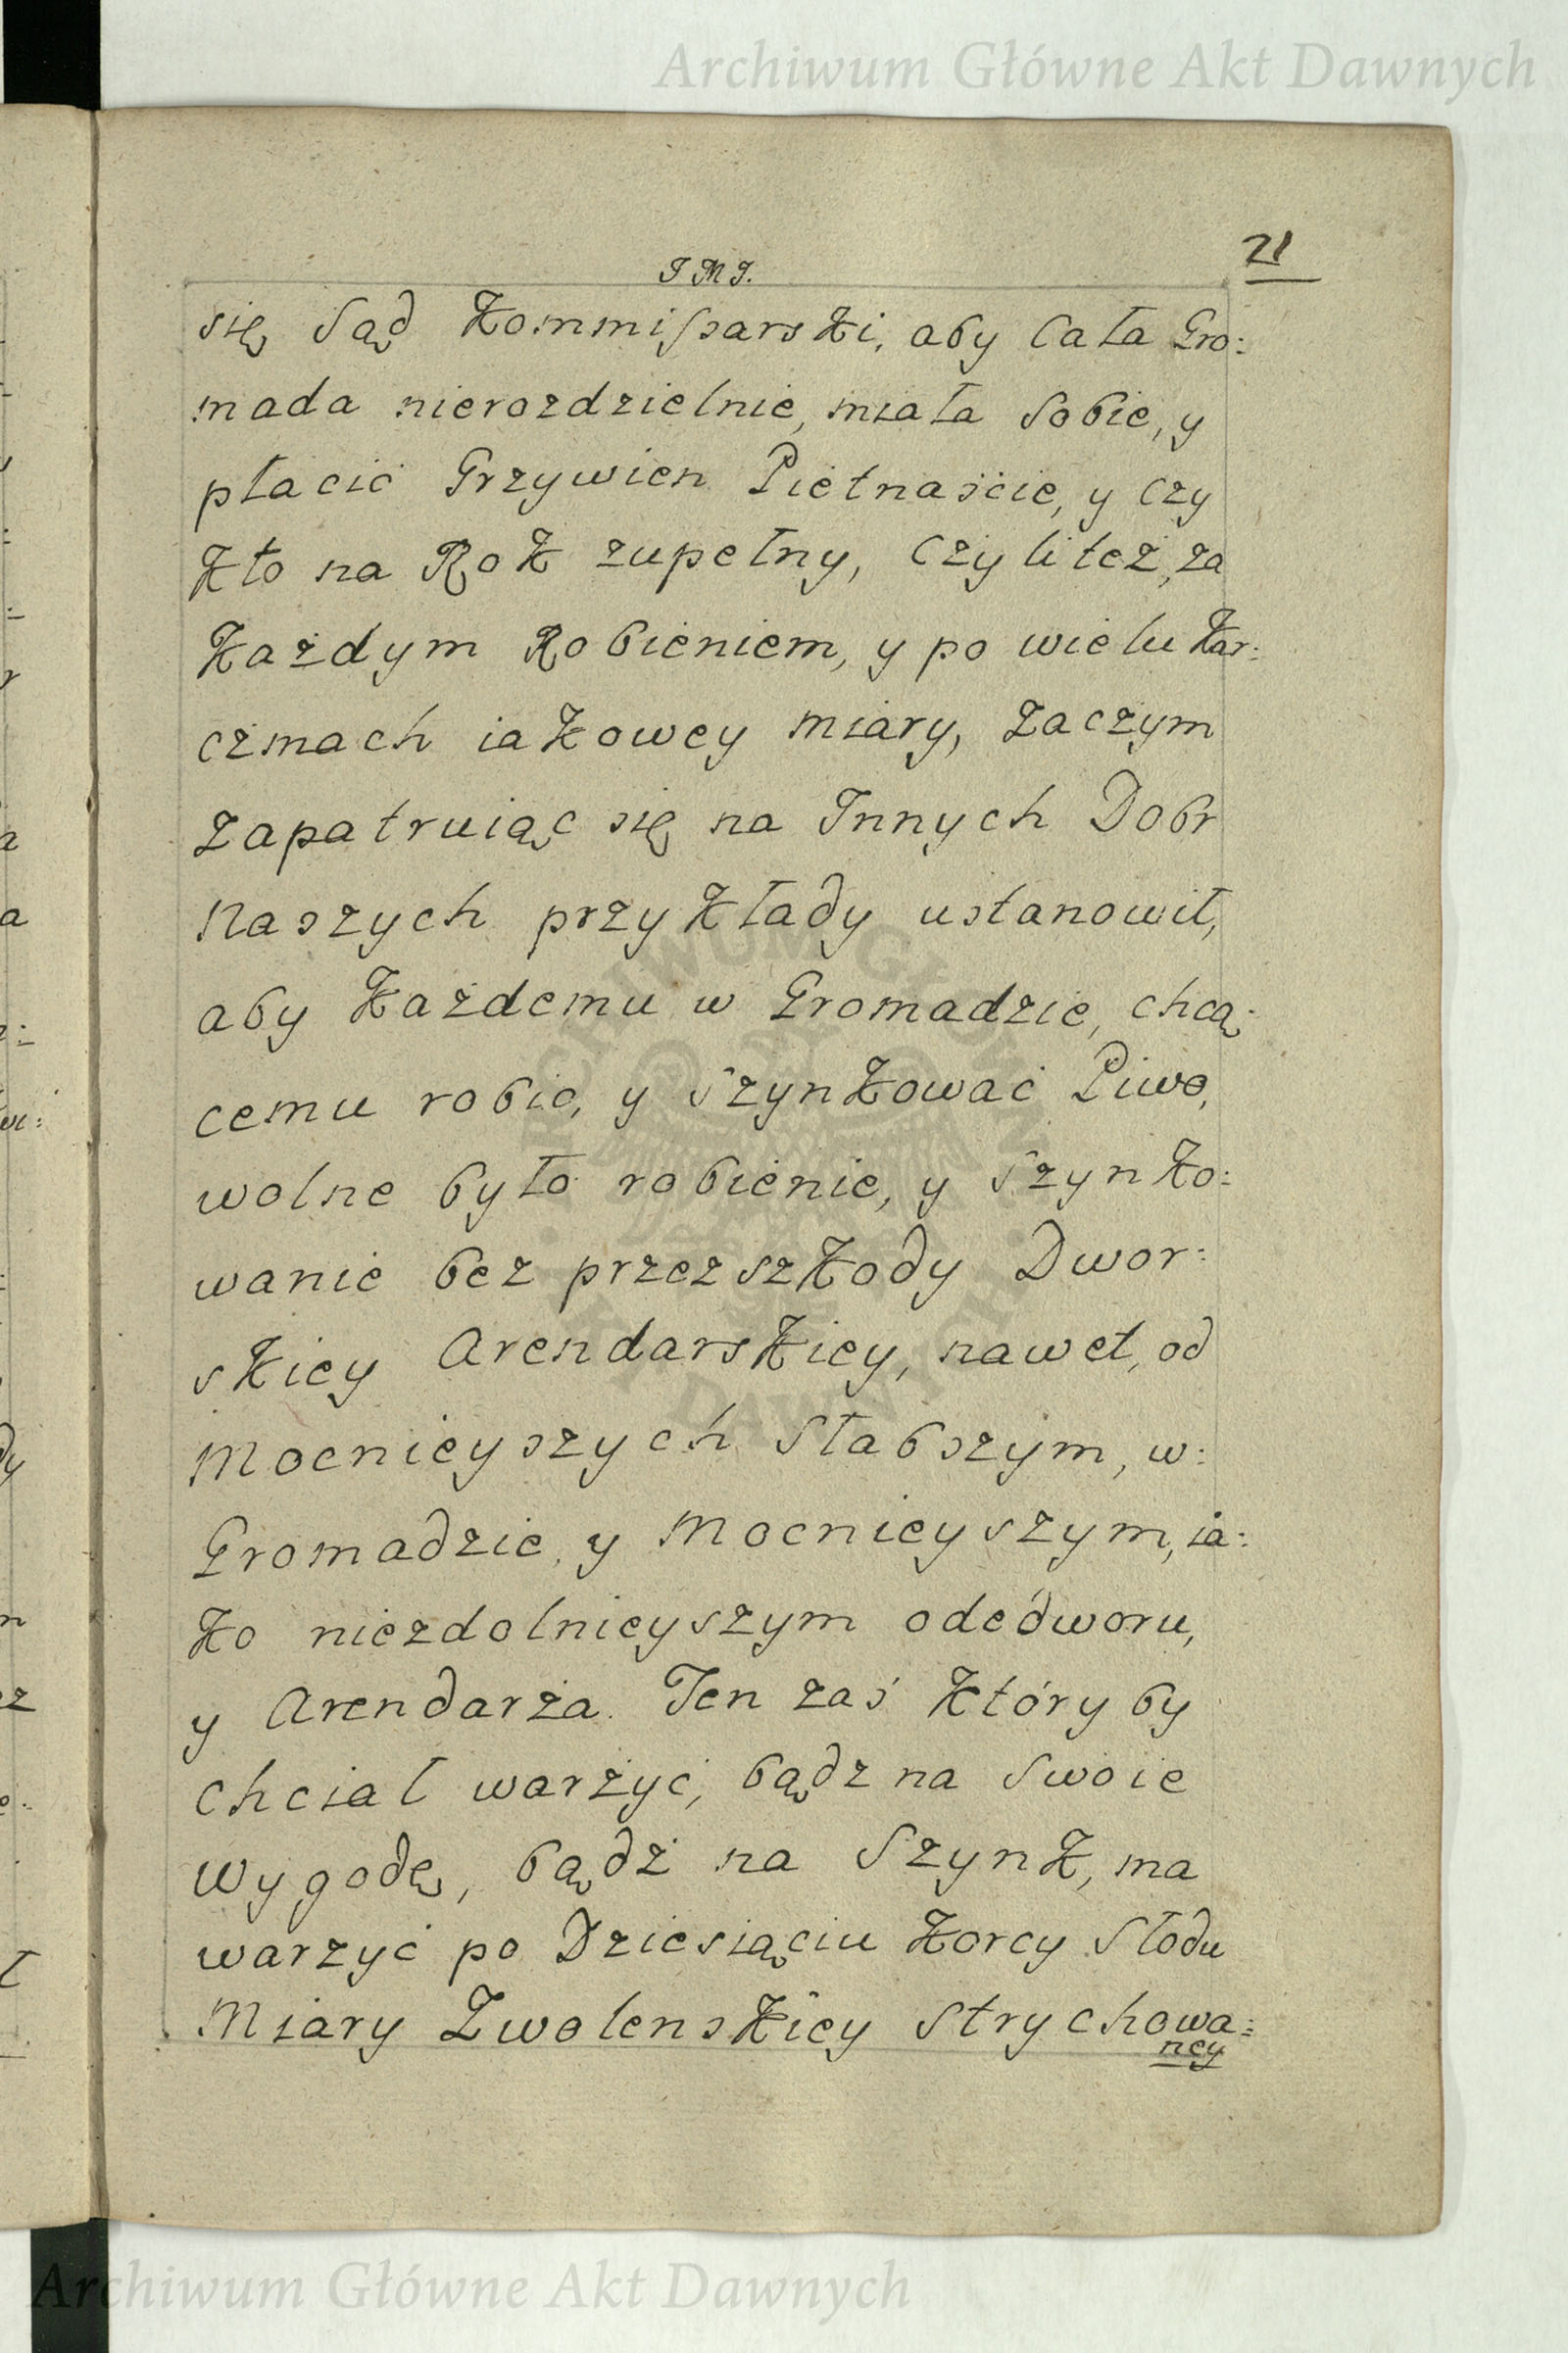 Archiwum Główne Akt Dawnych
21
J M J.
się Sąd Kommißarski, aby Cała Gro:
mada nierozdzielnie, miała Sobie, y
płacić Grzywien Pietnaście, y czy
kto na Rok zupełny, czyli też, za
Każdym Robieniem, y po wielu Kar:
czmach iakowey Miary, Zaczym
Zapatruiąc się na Innych Dobr
Naszych przykłady ustanowił,
aby Każdemu w Gromadzie, chcą:
cemu robic, y Szynkować Piwo,
wolne było robienie, y Szynko:
wanie bez przezszkody Dwor:
skiey Arendarskiey, nawet, od
Mocnieyszych Słabszym, w:
Gromadzie, y Mocnieyszym, ia:
ko niezdolnieyszym odedworu,
y Arendarża. Ten zaś który by
chciał warżyć, bądz na Swoie
Wygodę, bądź na Szynk, ma
warzyć po Dziesiąciu Korcy Słodu
Miary Zwolenskiey Strychowa:
ney
Archiwum Główne Akt Dawnych